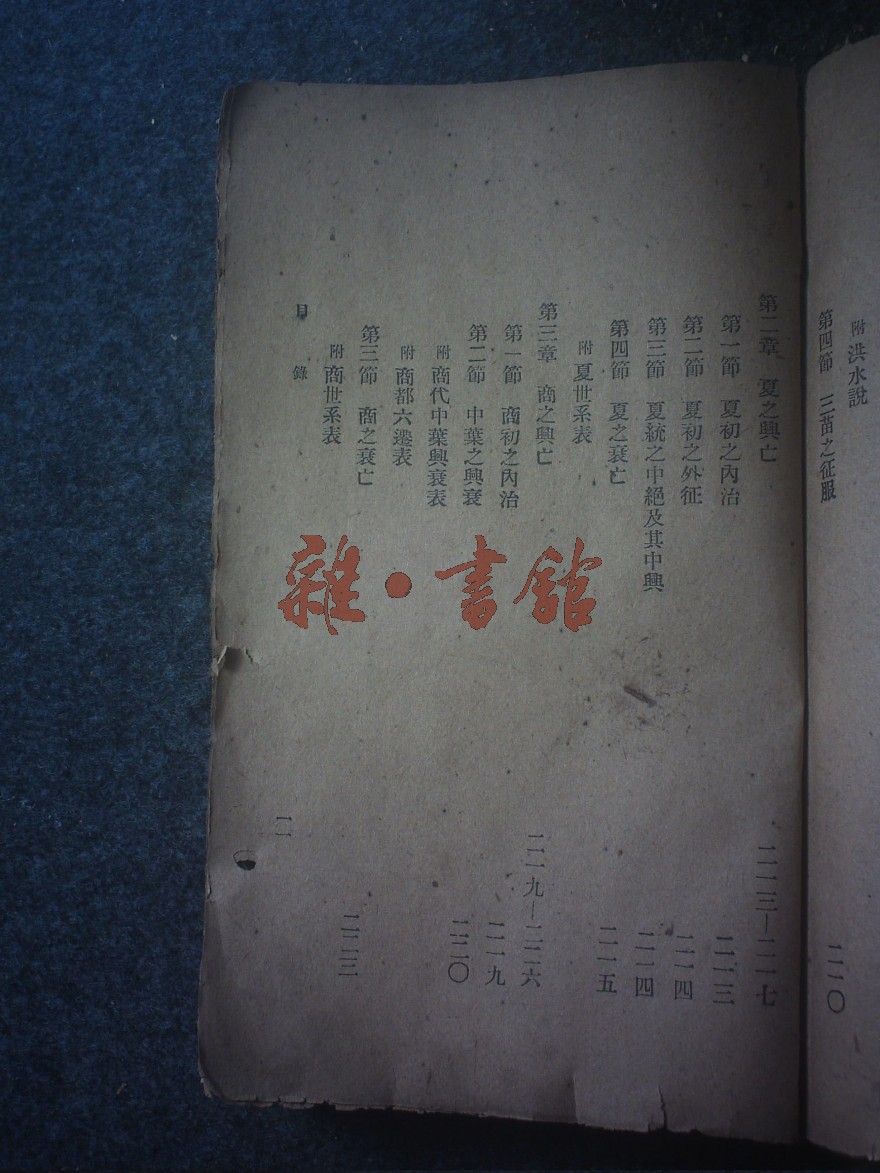 附 洪水說
第四節 三苗之征服 二一〇
第二章 夏之興亡 二一三—二一七
第一節 夏初之內治 二一三
第二節 夏初之外征 二一四
第三節 夏統之中絕及其中興 二一四
第四節 夏之衰亡 二一五
附 夏世系表
第三章 商之興亡 二一九—二二六
第一節 商初之內治 二一九
第二節 中葉之興衰 二二〇
附 商代中葉興衰表
附 商都六遷表
第三節 商之衰亡 二二三
附 商世系表
目錄 一一
雜·書館